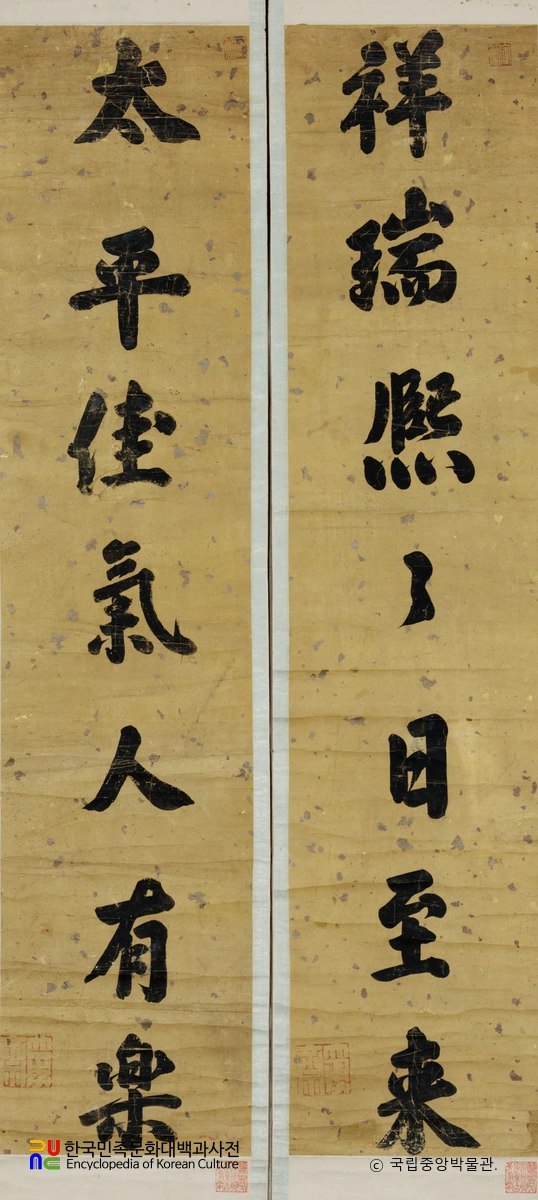 祥瑞熙〻日至来
太平佳氣人有樂
한국민족문화대백과사전
Encyclopedia of Korean Culture
© 국립중앙박물관.